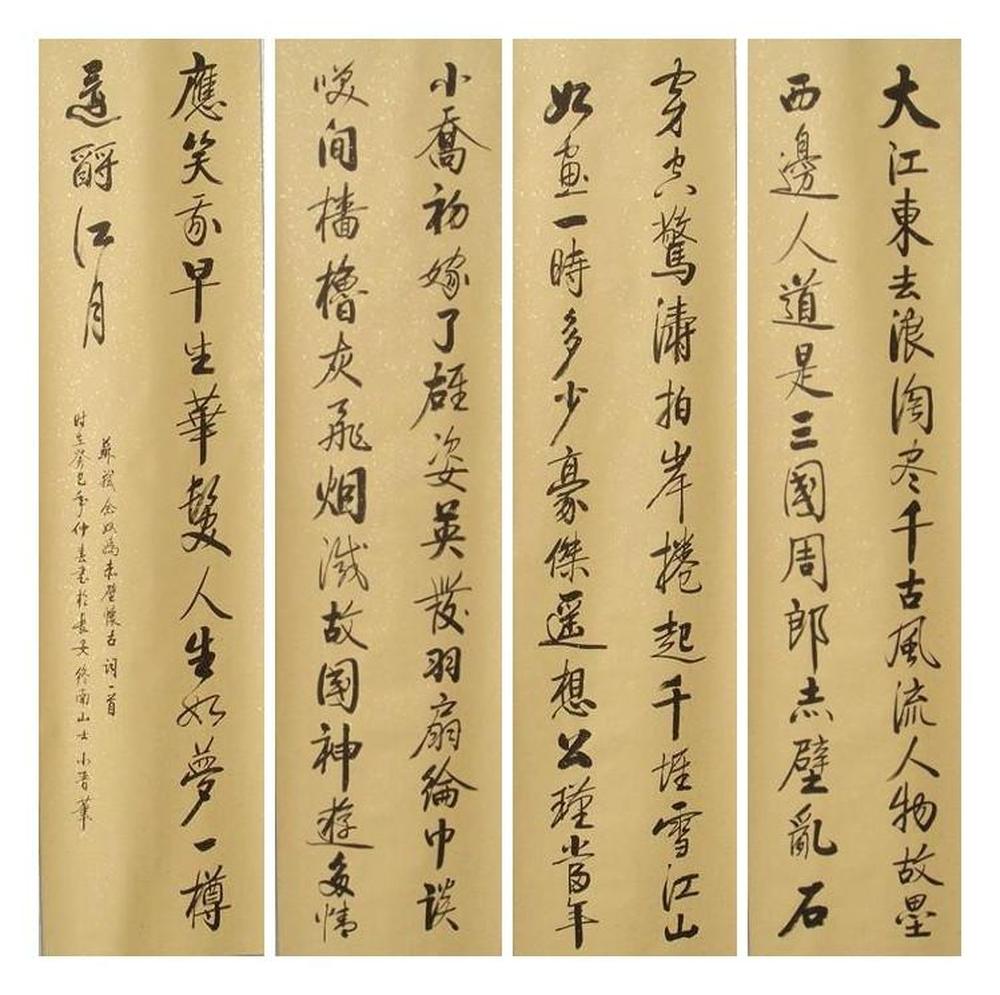 大江東去浪淘尽千古風流人物故壘
西邊人道是三國周郎赤壁亂石
穿空驚濤拍岸捲起千堆雪江山
如畫一時多少豪傑遥想公瑾當年
小喬初嫁了雄姿英發羽扇綸巾談
咲間檣櫓灰飛烟滅故國神遊多情
應笑我早生華髮人生如夢一樽
還酹江月
蘇軾念奴嬌赤壁懷古詞一首
时在癸巳年仲春书於長安終南山士小晋